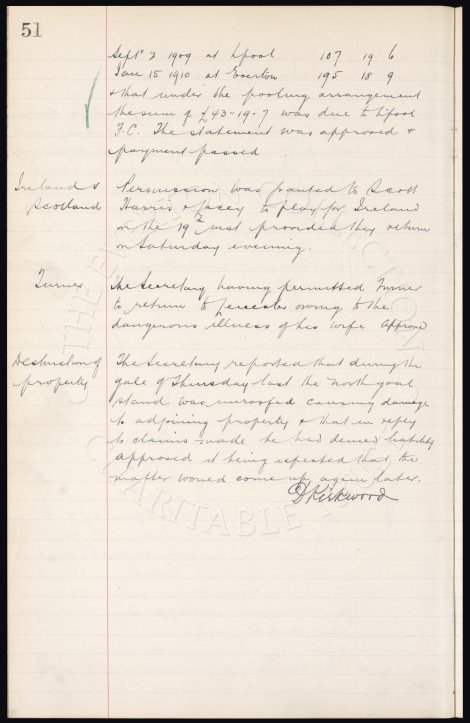 51
Sept 2 1909 at Lpool 107 19 6
Jan 15 1910 at Everton 195 18 9
& that under the pooling arrangement
the sum of £43-19-7 was due to Lpool
F.C. The statement was approved &
payment passed
Ireland v Permission was granted to Scott
Scotland Harris & Lacey to play for Ireland
on the 19th inst provided they return
on Saturday evening.
Turner The Secretary having permitted Turner
to return to Leicester owing to the
dangerous illness of his wife approved
Destruction of The Secretary reported that during the
property gale of Thursday last the North goal
stand was unroofed causing damage
to adjoining property & that in reply
to claims made he had denied liability
approved it being expected that the
matter would come up again later.
D Kirkwood
THE EVERTON COLLECTION
CHARITABLE